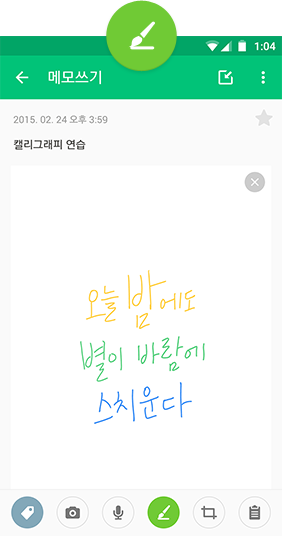 1:04
메모쓰기
2015. 02. 24 오후 3:59
캘리그래피 연습
오늘 밤에도
별이 바람에
스치운다